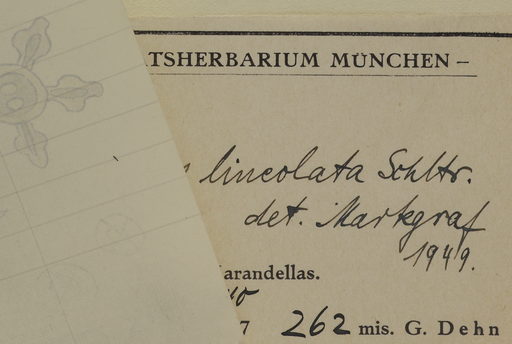 TSHERBARIUM MÜNCHEN –
lineolata Schltr.
det. Markgraf
1949.
arandellas.
7 262 mis. G. Dehn